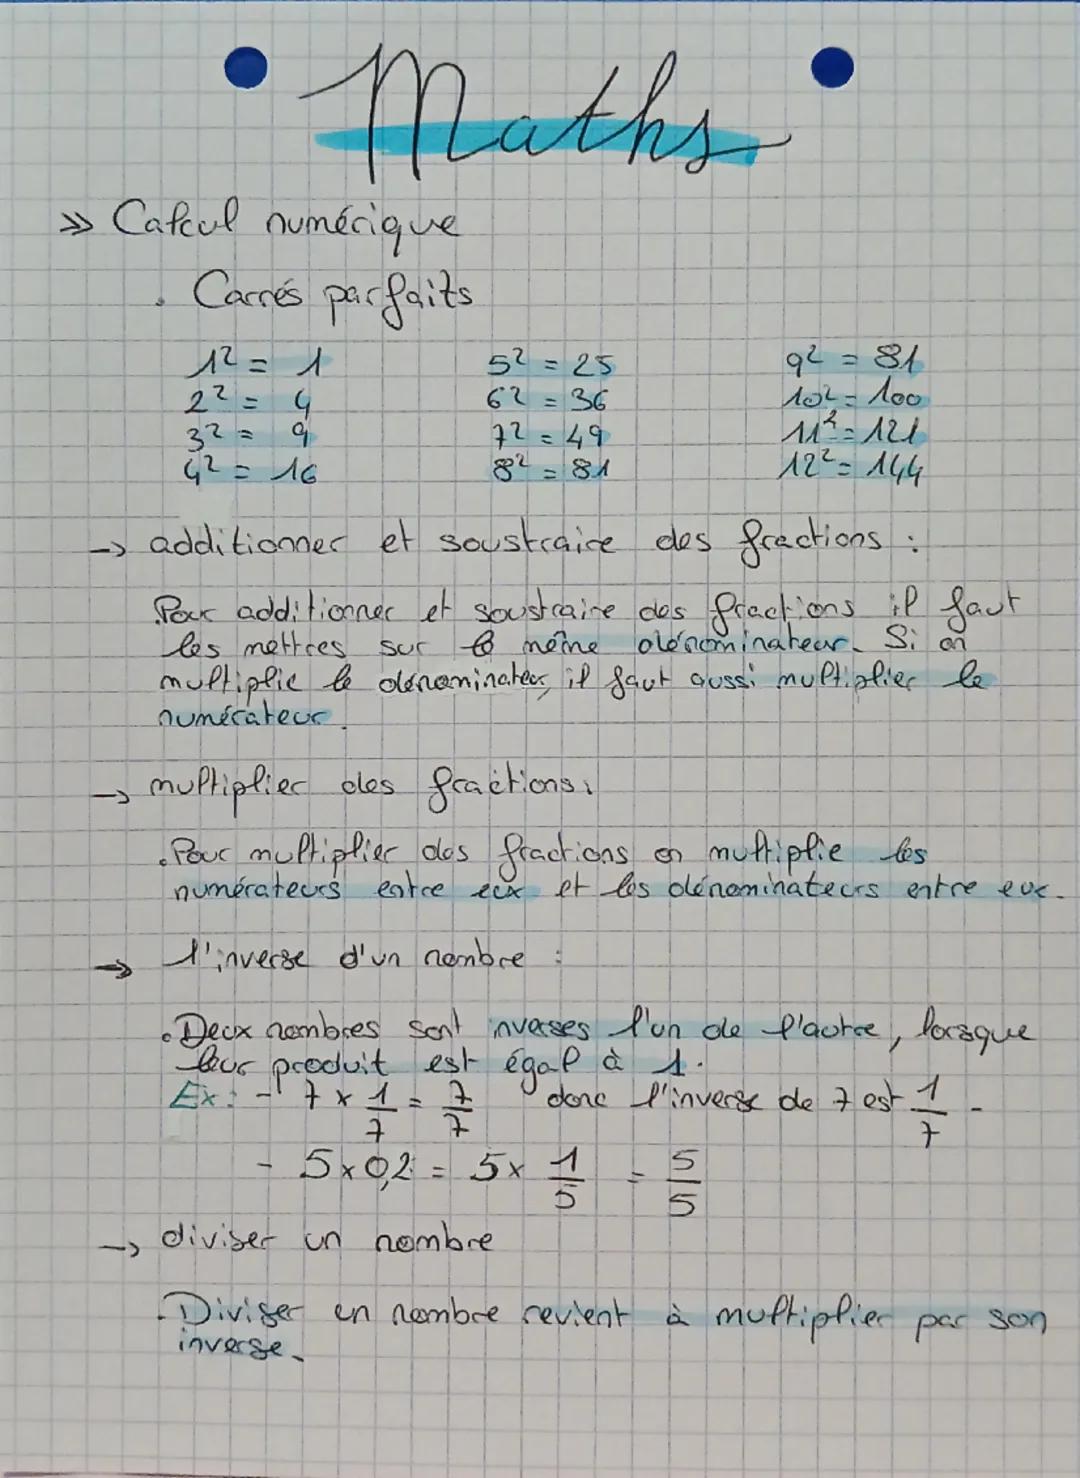 Maths
» Calcul numérique
. Carrés parfaits
1² = 1 5² = 25 9² = 81
2² = 4 6² = 36 10² = 100
3² = 9 7² = 49 11² = 121
4² = 16 8² = 81 12² = 144
-> additionner et soustraire des fractions :
.Pour additionner et soustraire des fractions il faut
les mettres sur le même dénominateur. Si on
multiplie le dénominateur, il faut aussi multiplier le
numérateur.
-> multiplier des fractions:
.Pour multiplier des fractions on multiplie les
numérateurs entre eux et les dénominateurs entre eux.
-> l'inverse d'un nombre :
.Deux nombres sont inverses l'un de l'autre, lorsque
leur produit est égal à 1.
Ex: - 7 x 1/7 = 7/7 donc l'inverse de 7 est 1/7 -
- 5 x 0,2 = 5 x 1/5 = 5/5
-> diviser un nombre
.Diviser un nombre revient à multiplier par son
inverse.